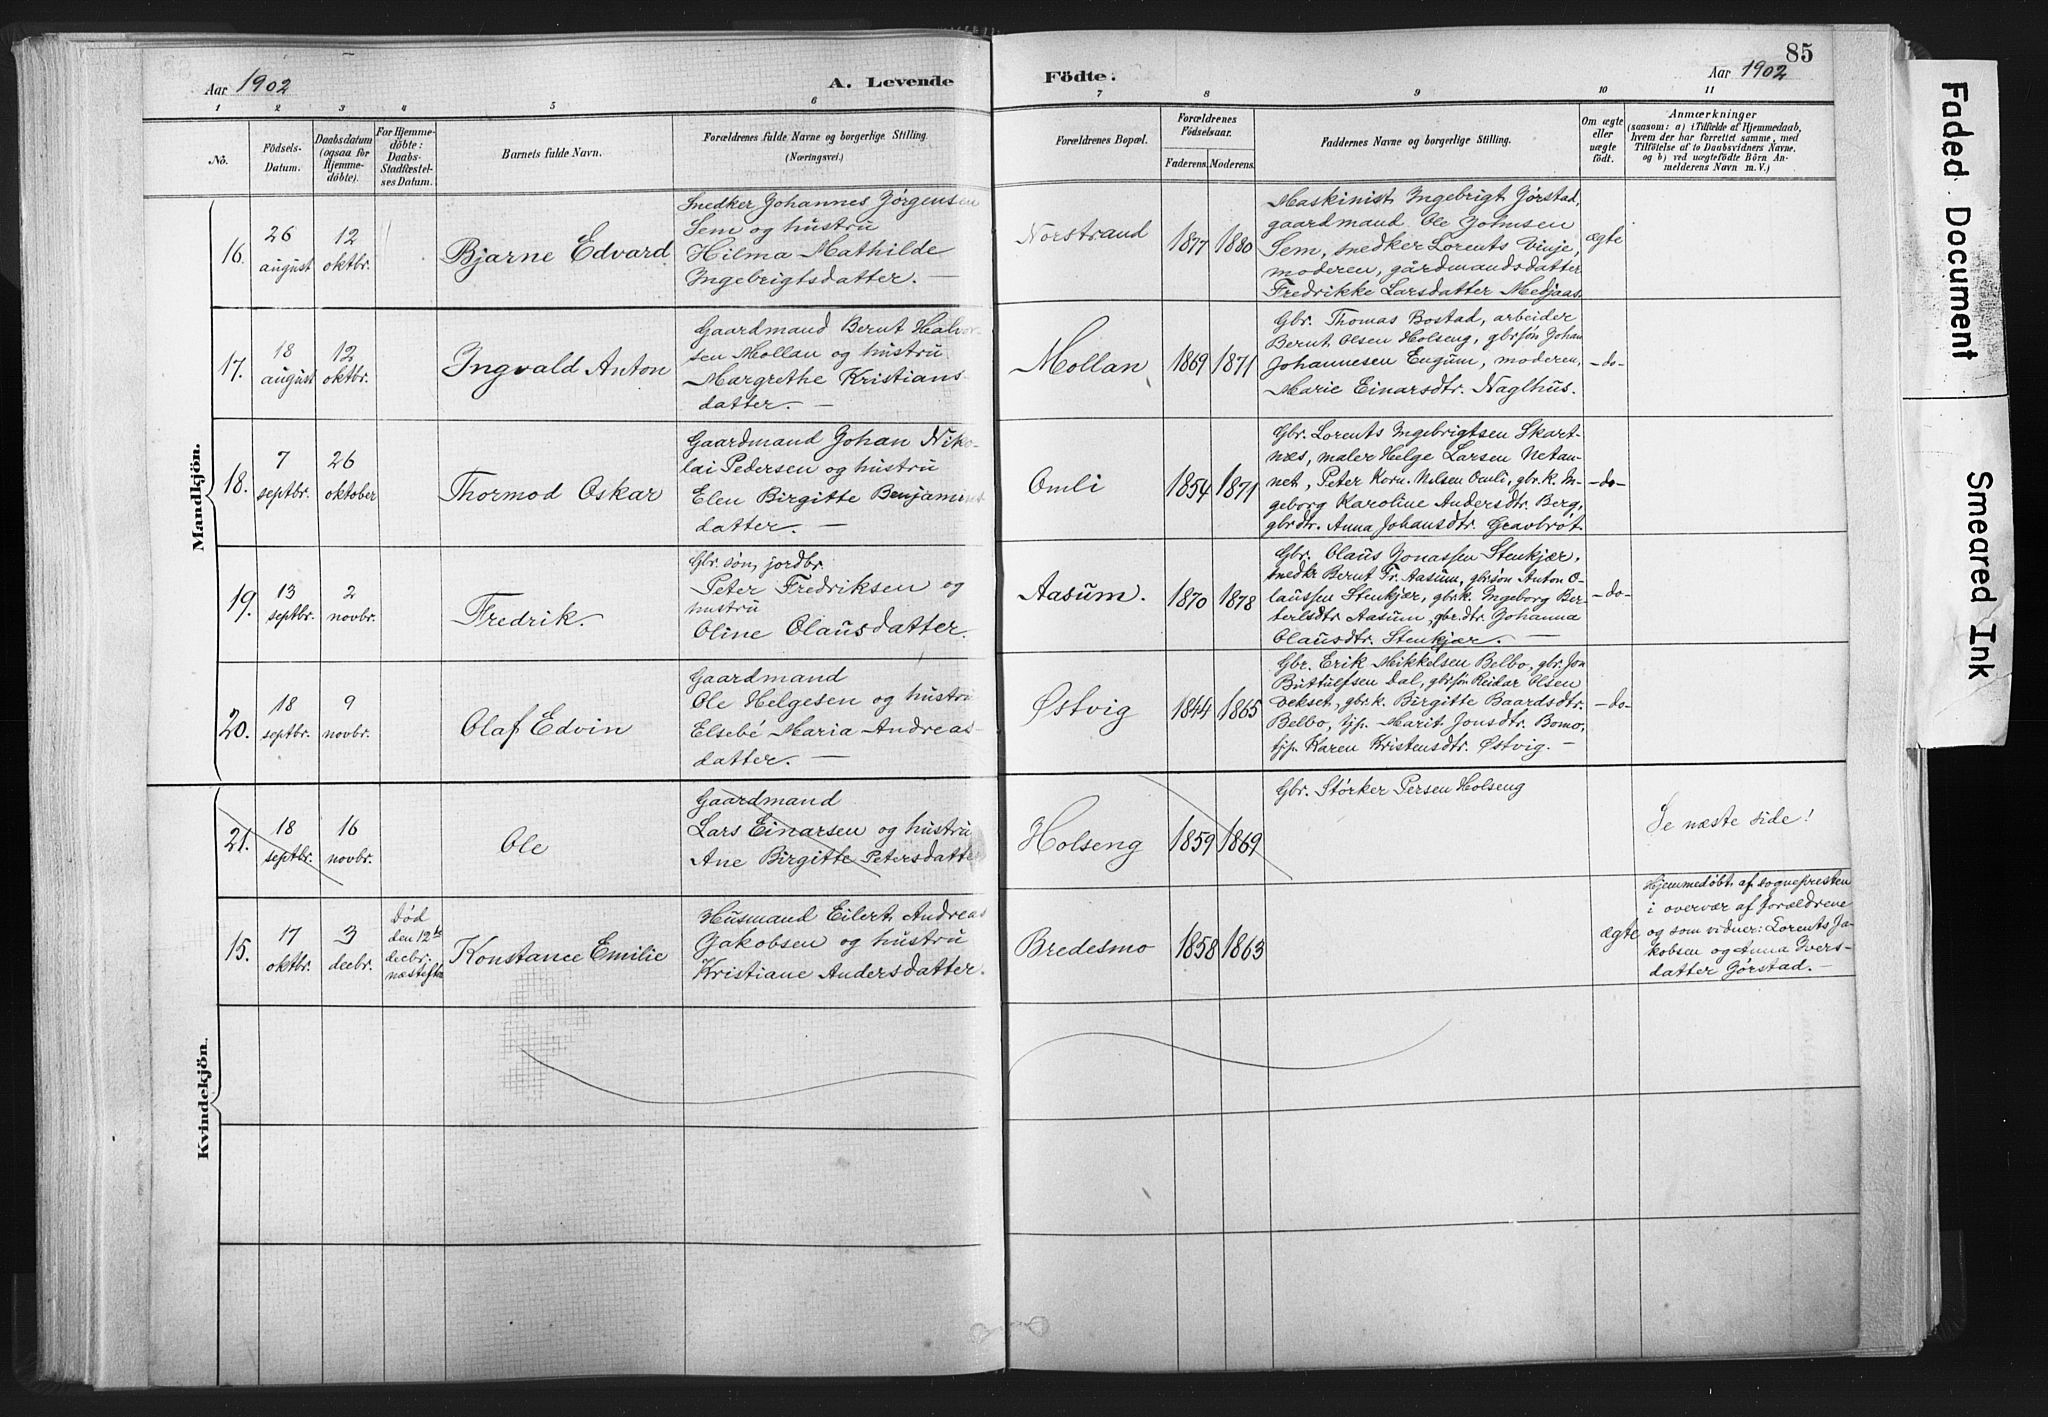 Aar 1902
A. Levende
Födte.
85
Aar 1902
1 2 3 4 5 6 7 8 9 10 11
Nô.
Födsels-
Datum.
Daabsdatum
(ogsaa for
Hjemme-
döbte).
For Hjemme-
döbte:
Daabs-
Stadfæstel-
ses Datum.
Barnets fulde Navn.
Forældrenes fulde Navne og borgerlige Stilling.
(Næringsvei.)
Forældrenes Bopæl.
Forældrenes
Födselsaar.
Faderens.
Moderens.
Faddernes Navne og borgerlige Stilling.
Om ægte
eller
uægte
født.
Anmærkninger
(saasom: a) i Tilfælde af Hjemmedaab,
hvem der har forrettet samme, med
Tilföielse af to Daabsvidners Navne,
og b) ved uægtefödte Börn An-
melderens Navn m. V.)
Mandkjön.
16.
26
august
12
oktbr.
Bjarne Edvard
Snedker Johannes Jørgensen
Sem og hustru
Hilma Mathilde
Ingebrigtsdatter. —
Norstrand
1877
1880
Maskinist Ingebrigt Gjørstad,
gaardmand Ole Johnsen
Sem, snedker Lorents Vinje,
moderen, gårdmandsdatter
Fredrikke Larsdatter Medjaas.
ægte
17.
18
august
12
oktbr.
Ingvald Anton
Gaardmand Bernt Halvor-
sen Mollan og hustru
Margrethe Kristians-
datter. —
Mollan
1869
1871
Gbr. Thomas Bostad, arbeider
Bernt Olsen Holseng, gbr.søn Johan
Johannesen Engum, moderen,
Marie Einarsdtr. Naglhus.
-do-
18.
7
septbr.
26
oktober
Thormod Oskar
Gaardmand Johan Niko-
lai Pedersen og hustru
Elen Birgitte Benjamins-
datter. —
Omli
1854
1871
Gbr. Lorents Ingebrigtsen Skart-
næs, maler Helge Larsen Netan-
net, Peter Korn. Nilsen Omli, gbr.k. In-
geborg Karoline Andersdtr. Berg,
gbrdtr. Anna Johansdtr. Gravbrøt.
-do-
19.
13
septbr.
2
novbr.
Fredrik.
Gbr. søn, jordbr.
Peter Fredriksen og
hustru
Oline Olausdatter.
Aasum.
1870
1878
Gbr. Olaus Jonassen Stenkjær,
snedkr Bernt Fr. Aasum, gbrsøn Anton O-
laussen Stenkjær, gbrk. Ingeborg Ber-
terlsdtr Aasum, gbr.dtr. Johanna
Olausdtr. Stenkjær. —
-do-
20.
18
septbr.
9
novbr.
Olaf Edvin
Gaardmand
Ole Helgesen og hustru
Elsebé Maria Andreas-
datter. —
Østvig
1844
1865
Gbr. Erik Mikkelsen Belbo, gbr. Jon
Buttulfsen Dal, gbrsøn Reidar Olsen
Vekset, gbr.k. Birgitte Baardsdtr.
Belbo, tjp. Marit Jonsdtr. Bomo,
tjp. Karen Kristensdtr. Østvig. —
-do-
Kvindekjön.
21.
18
septbr.
16
novbr.
Ole
Gaardmand
Lars Einarsen og hustru
Ane Birgitte Petersdatter
Holseng
1859
1869
Gbr. Størker Persen Holseng
Se næste side!
15.
17
oktbr.
3
decbr.
Død
den 12te
decbr.
næstefter
Konstance Emilie
Husmand Eilert Andreas
Jakobsen og hustru
Kristiane Andersdatter.
Bredesmo
1858
1863
ægte
Hjemmedøbt af sognepresten
i overvær af forældrene
og som vidner: Lorents Ja-
kobsen og Anna Ivers-
datter Gjørstad. —
Faded Document
Smeared Ink